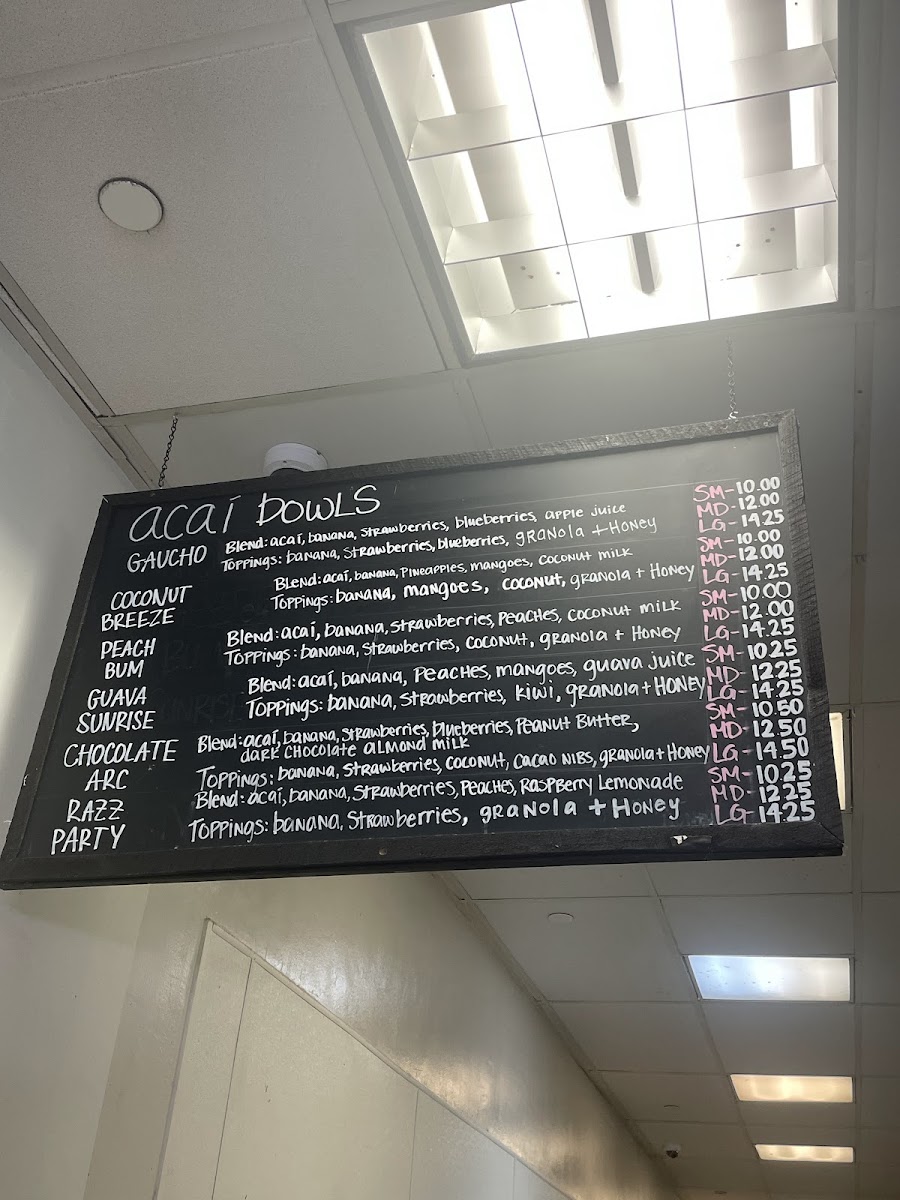 acaí BOWLS
GAUCHO
Blend: acaí, banana, strawberries, blueberries, apple juice
Toppings: banana, strawberries, blueberries, granola + Honey
SM-10.00
MD-12.00
LG-14.25
COCONUT
BREEZE
Blend: acaí, banana, Pineapples, mangoes, coconut milk
Toppings: banana, mangoes, coconut, granola + Honey
SM-10.00
MD-12.00
LG-14.25
PEACH
BUM
Blend: acaí, banana, strawberries, Peaches, coconut milk
Toppings: banana, strawberries, coconut, granola + Honey
SM-10.00
MD-12.00
LG-14.25
GUAVA
SUNRISE
Blend: acaí, banana, Peaches, mangoes, guava juice
Toppings: banana, strawberries, kiwi, granola + Honey
SM-10.25
MD-12.25
LG-14.25
CHOCOLATE
ARC
Blend: acaí, banana, strawberries, blueberries, Peanut Butter,
dark chocolate almond milk
Toppings: banana, strawberries, coconut, cacao nibs, granola + Honey
SM-10.50
MD-12.50
LG-14.50
RAZZ
PARTY
Blend: acaí, banana, strawberries, Peaches, Raspberry Lemonade
Toppings: banana, strawberries, granola + Honey
SM-10.25
MD-12.25
LG-14.25